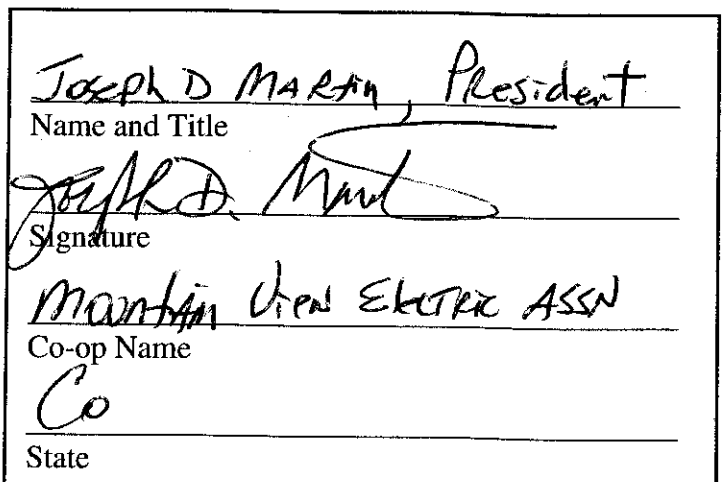 Joseph D Martin, President
Name and Title
Joseph D. Mart
Signature
Mountain View Electric ASSN
Co-op Name
Co
State